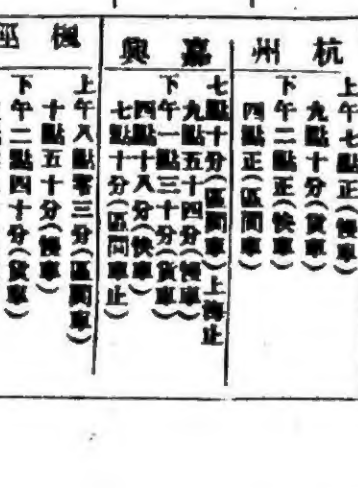 杭州
上午七點正(慢車)
九點十分(貨車)
下午二點正(快車)
四點正(區間車)
嘉興
七點十分(區間車)上海止
九點五十四分(慢車)
下午一點三十分(貨車)
四點十八分(快車)
七點十分(區間車止)
楓
上午八點零三分(區間車)
十點五十分(慢車)
下午二點四十分(貨車)